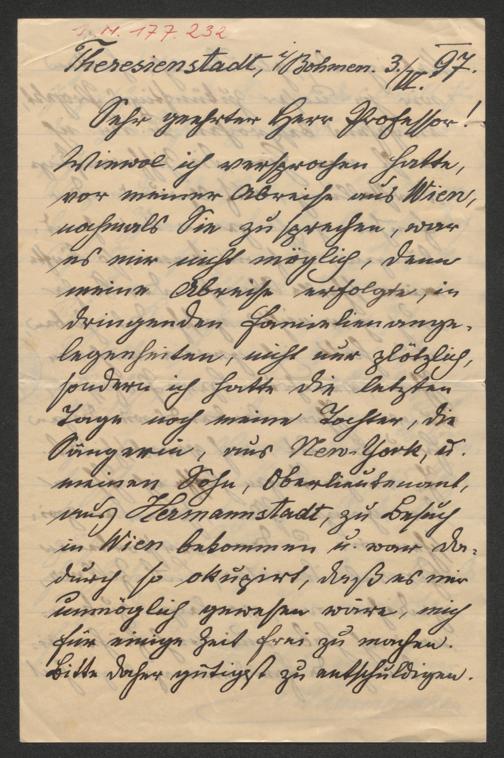 I. N. 177.232
Theresienstadt, i/Böhmen. 3./II. 97.
Sehr geehrter Herr Professor!
Wiewol ich versprochen hatte,
vor meiner Abreise aus Wien,
nochmals Sie zu sprechen, war
es mir nicht möglich, denn
meine Abreise erfolgte, in
dringenden Familienange-
legenheiten, nicht nur plötzlich,
sondern ich hatte die letzten
Tage noch meine Tochter, die
Sängerin, aus New-York, u.
meinen Sohn, Oberlieutenant,
aus Hermannstadt, zu Besuch
in Wien bekommen u. war da-
durch so okupirt, daß es mir
unmöglich gewesen wäre, mich
für einige Zeit frei zu machen.
Bitte daher gütigst zu entschuldigen.